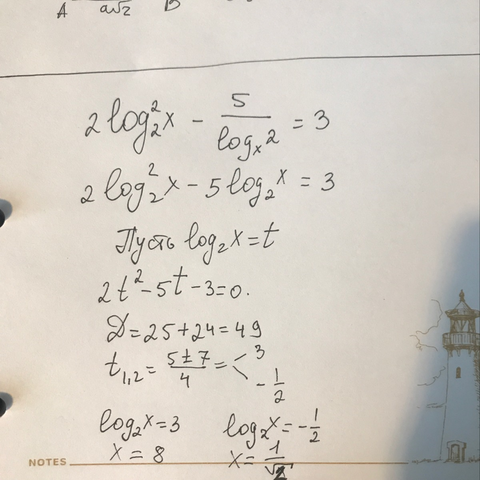 A a√2 B
2log₂²x - 5/logₓ2 = 3
2log₂²x - 5log₂x = 3
Пусть log₂x = t
2t² - 5t - 3 = 0.
D = 25 + 24 = 49
t₁,₂ = (5 ± 7)/4 = < 3
-1/2
log₂x = 3 log₂x = -1/2
x = 8 x = 1/√2
NOTES